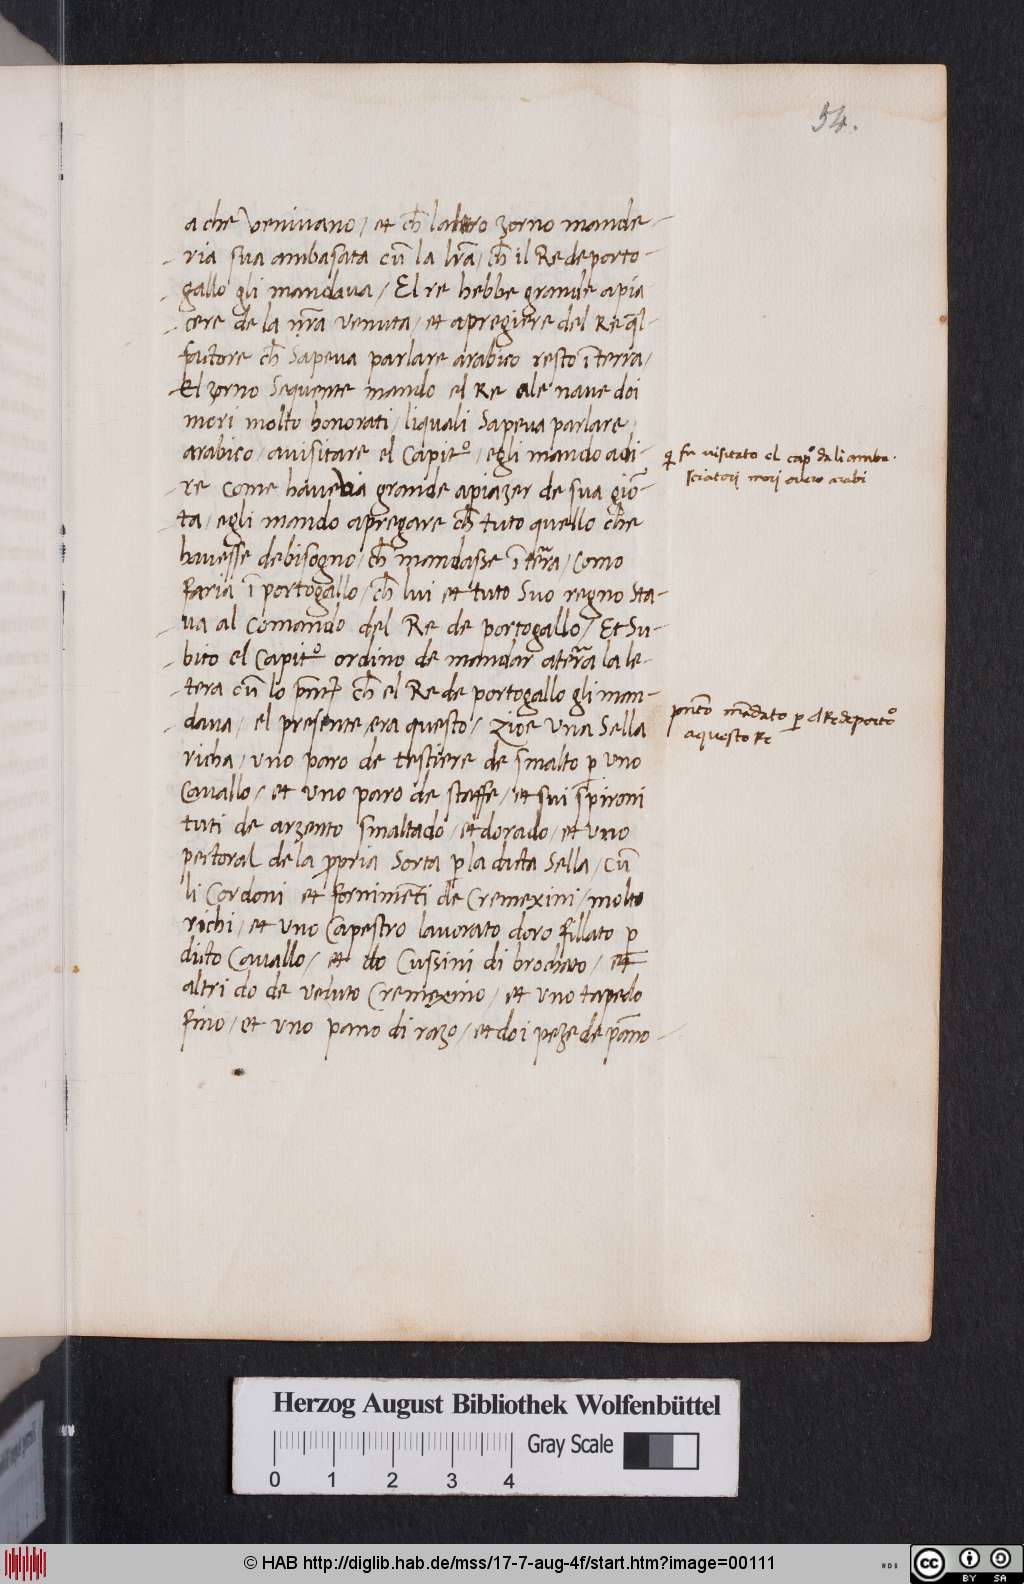 54.
a che venivano / et ch̄ laltro zorno mande-
ria sua ambasata cū la lr̄a / ch̄ il Re de porto-
gallo gli mandava / El re hebbe grande apia
cere de la nr̄a venuta / et apregiere del Re ql̄
fattore ch̄ sapeva parlare arabico resto ī terra /
El zorno sequente mando el Re ale nave doi
mori molto honorati / liquali sapeva parlare
arabico / avisitare el Capitº / egli mando adi-
re come haveva grande apiazer de sua giō-
ta / egli mando apregare ch̄ tuto quello che
havesse debisogno / ch̄ mandasse ī terra / como
faria ī portogallo / ch̄ lui et tuto suo regno sta-
va al comando del Re de portogallo / Et su-
bito el Capitº ordino de mandar aterra la le-
tera cū lo ch̄ el Re de portogallo gli man-
dava / el presente era questo / zioe una sella
richa / uno paro de testiere de smalto p̱ uno
Cavallo / et uno paro de staffe / et sui spironi
tuti de arzento smaltado / et dorado / et uno
pectoral de la ꝓpria sorta p̱ la dicta sella / cū
li Cordoni et fornimēti de Cremexini / molto
richi / et uno Capestro lavorato doro fillato p̱
dicto Cavallo / et do Cussini di brochato / et
altri do de veluto Cremexino / et uno tapedo
fino / et uno pano di razo / et doi peze de pāno-
q̱ fu visitato el capº da li amba-
sciatorj morj overo arabi
mādato p̱ el Re de portº
a questo Re
Herzog August Bibliothek Wolfenbüttel
0 1 2 3 4
Gray Scale
© HAB http://diglib.hab.de/mss/17-7-aug-4f/start.htm?image=00111
cc BY SA